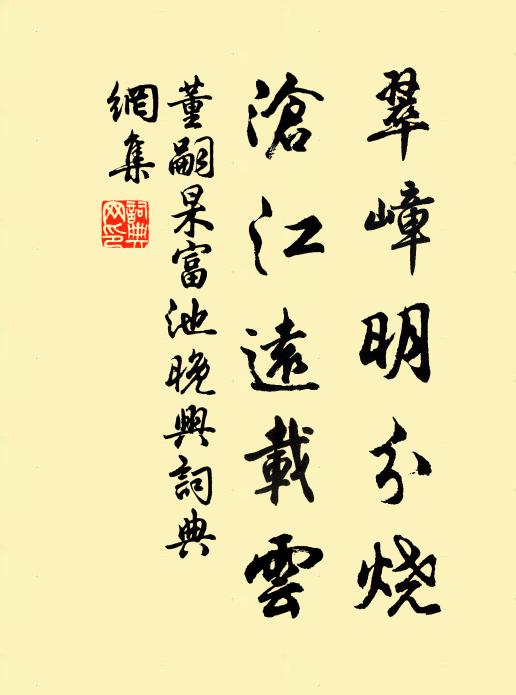 翠嶂明分烧
滄江遠載雲
董嗣杲富池晚興詞典
網集
詞典
网印